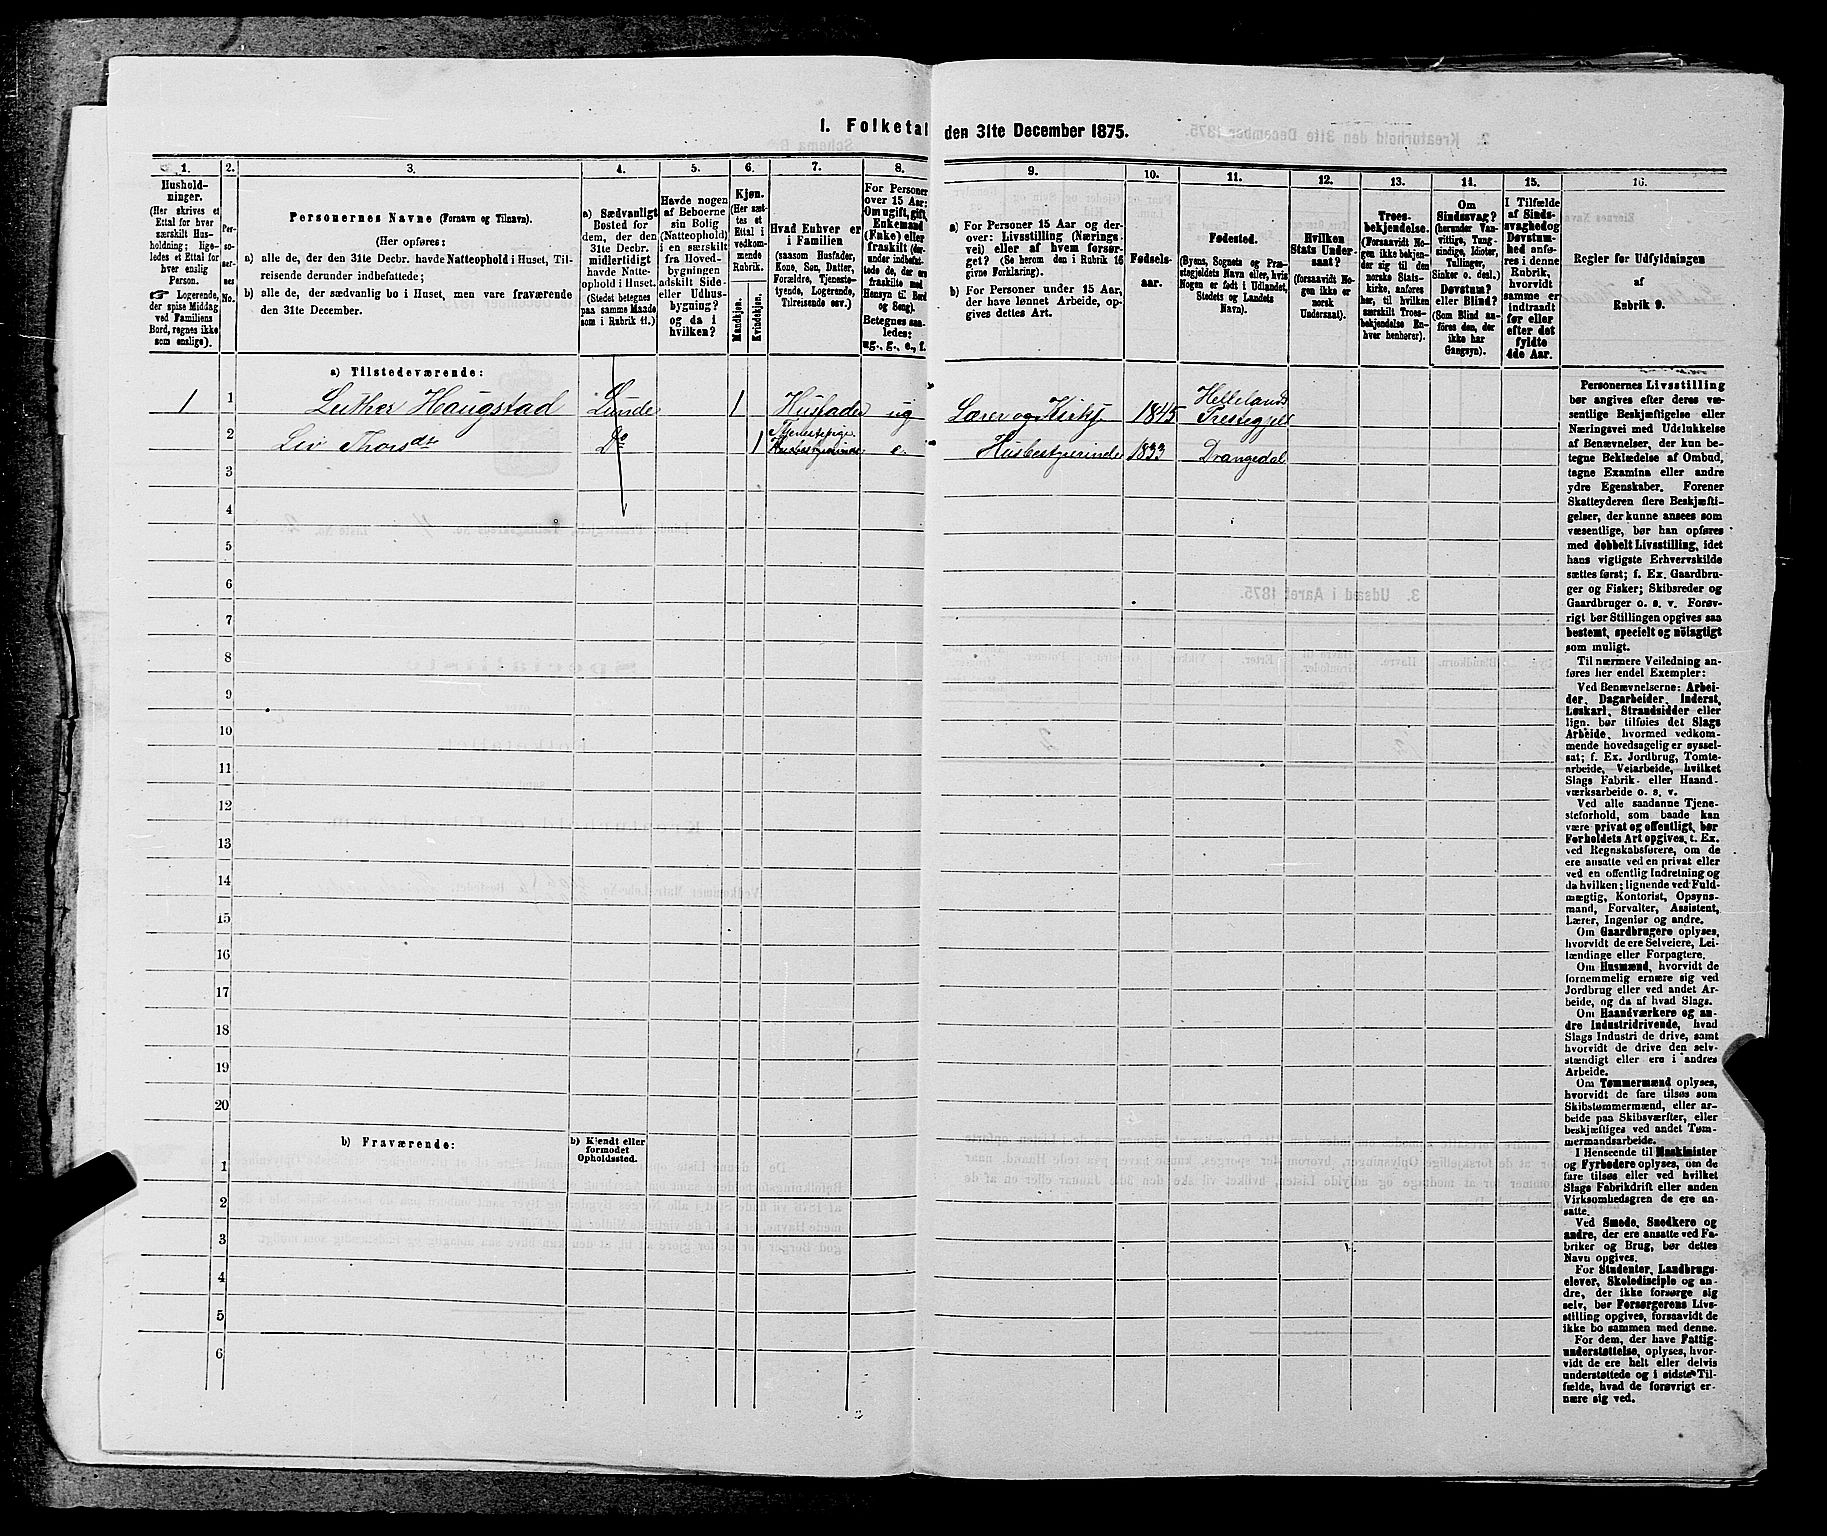 1. Folketal den 31te December 1875.
1.
2.
3.
4.
5.
6.
7.
8.
9.
10.
11.
12.
13.
14.
15.
16.
Hushold-
ninger.
(Her skrives et
Ettal for hver
særskilt Hus-
holdning; lige-
ledes et Ettal for
hver enslig
Person.
☞ Logerende,
der spise Middag
ved Familiens
Bord, regnes ikke
som enslige).
Per-
so-
ner-
nes
No.
Personernes Navne (Fornavn og Tilnavn).
(Her opføres:
a) alle de, der den 31te Decbr. havde Natteophold i Huset, Til-
reisende derunder indbefattede;
b) alle de, der sædvanlig bo i Huset, men vare fraværende
den 31te December.
a) Sædvanligt
Bosted for
dem, der den
31te Decbr.
midlertidigt
havde Natte-
ophold i Huset.
(Stedet betegnes
paa samme Maade
som i Rubrik 11.)
Havde nogen
af Beboerne
sin Bolig
(Natteophold)
i en særskilt
fra Hoved-
bygningen
adskilt Side-
eller Udhus-
bygning?
og da i
hvilken?
Kjøn.
(Her sæt-
tes et
Ettal i
vedkom-
mende
Rubrik.
Mandkjøn.
Kvindekjøn.
Hvad Enhver er
i Familien
(saasom Husfader,
Kone, Søn, Datter,
Forældre, Tjeneste-
tyende, Logerende,
Tilreisende osv.)
For Personer
over 15 Aar:
Om ugift, gift,
Enkemand
(Enke) eller
fraskilt (der-
under indbefat-
tede de, der ere
fraskilte med
Hensyn til Bord
og Seng).
Betegnes saa-
ledes:
ug., g., e., f.
a) For Personer 15 Aar og der-
over: Livsstilling (Nærings-
vei) eller af hvem forsør-
get? (Se herom den i Rubrik 16
givne Forklaring).
b) For Personer under 15 Aar,
der have lønnet Arbeide, op-
gives dettes Art.
Fødsels-
aar.
Fødested.
(Byens, Sognets og Præ-
stegjeldets Navn eller, hvis
Nogen er født i Udlandet,
Stedets og Landets
Navn).
Hvilken
Stats Under-
saat?
(forsaavidt No-
gen ikke er
norsk
Undersaat).
Troes-
bekjendelse.
(Forsaavidt No-
gen ikke bekjen-
der sig til den
norske Stats-
kirke, anføres
her, til hvilken
særskilt Troes-
bekjendelse En-
hver henhører).
Om
Sindssvag?
(herunder Van-
vittige, Tung-
sindige, Idioter,
Tullinger,
Sinker o. desl.)
Døvstum?
eller Blind?
(Som Blind an-
føres den, der
ikke har
Gangsyn).
I Tilfælde
af Sinds-
svaghed og
Døvstum-
hed anfø-
res i denne
Rubrik,
hvorvidt
samme er
indtraadt
før eller
efter det
fyldte
4de Aar.
Regler for Udfyldningen
af
Rubrik 9.
a) Tilstedeværende:
1 1 Luther Haugstad Lunde 1 Husfader ug Lærer og 1845 Hellelands
Prestegjeld
2 Liv Thorsdtr Do 1 Tjenestepige
Husbestyrerinde e. Husbestyrerinde 1833 Drangedal
3
4
5
6
7
8
9
10
11
12
13
14
15
16
17
18
19
20
b) Fraværende:
b) Kjendt eller
formodet
Opholdssted.
1
2
3
4
5
6
Personernes Livsstilling
bør angives efter deres væ-
sentlige Beskjæftigelse eller
Næringsvei med Udelukkelse
af Benævnelser, der kun be-
tegne Beklædelse af Ombud,
tagne Examina eller andre
ydre Egenskaber. Forener
Skatteyderen flere Beskjæfti-
gelser, der kunne ansees som
væsentlige, bør han opføres
med dobbelt Livsstilling, idet
hans vigtigste Erhvervskilde
sættes først; f. Ex. Gaardbru-
ger og Fisker; Skibsreder og
Gaardbruger o. s. v. Forøv-
rigt bør Stillingen opgives saa
bestemt, specielt og nøiagtigt
som muligt.
Til nærmere Veiledning an-
føres her endel Exempler:
Ved Benævnelserne: Arbei-
der, Dagarbeider, Inderst,
Løskarl, Strandsidder eller
lign. bør tilføies det Slags
Arbeide, hvormed vedkom-
mende hovedsagelig er syssel-
sat; f. Ex. Jordbrug, Tomte-
arbeide, Veiarbeide, hvilket
Slags Fabrik- eller Haand-
værksarbeide o. s. v.
Ved alle saadanne Tjene-
steforhold, som baade kan
være privat og offentligt, bør
Forholdets Art opgives, t. Ex.
ved Regnskabsførere, om de
ere ansatte ved en privat eller
ved en offentlig Indretning og
da hvilken; lignende ved Fuld-
mægtig, Kontorist, Opsyns-
mand, Forvalter, Assistent,
Lærer, Ingeniør og andre.
Om Gaardbrugere oplyses,
hvorvidt de ere Selveiere, Lei-
lændinge eller Forpagtere.
Om Husmænd, hvorvidt de
fornemmelig ernære sig ved
Jordbrug eller ved andet Ar-
beide, og da af hvad Slags.
Om Haandværkere og an-
dre Industridrivende, hvad
Slags Industri de drive, samt
hvorvidt de drive den selv-
stændigt eller ere i andres
Arbeide.
Om Tømmermænd oplyses,
hvorvidt de fare tilsøs som
Skibstømmermænd, eller ar-
beide paa Skibsværfter, eller
beskjæftiges ved andet Tøm-
mermandsarbeide.
I Henseende til Maskinister
og Fyrbødere oplyses, om de
fare tilsøs eller ved hvilket
Slags Fabrikdrift eller anden
Virksomhedsgren de ere an-
satte.
Ved Smede, Snedkere og
andre, der ere ansatte ved Fa-
briker og Brug, bør dettes
Navn opgives.
For Studenter, Landbrugs-
elever, Skoledisciple og an-
dre, der ikke forsørge sig
selv, bør Forsørgerens Livs-
stilling opgives, forsaavidt de
ikke bo sammen med denne.
For dem, der have Fattig-
understøttelse, oplyses, hvor-
vidt de ere helt eller delvis
understøttede og i sidste Til-
fælde, hvad de forøvrigt er-
nære sig ved.